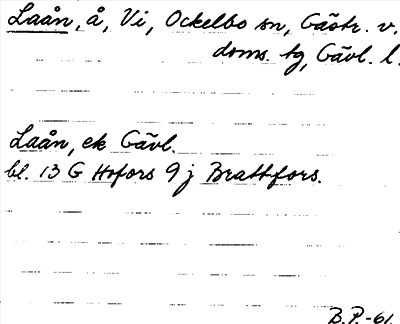 Laån, å, Vi, Ockelbo sn, Gästr. v.
doms. tg, Gävl. l.
Laån, ek Gävl.
bl. 13 G Hofors 9 j Brattfors.
B.P.-61.